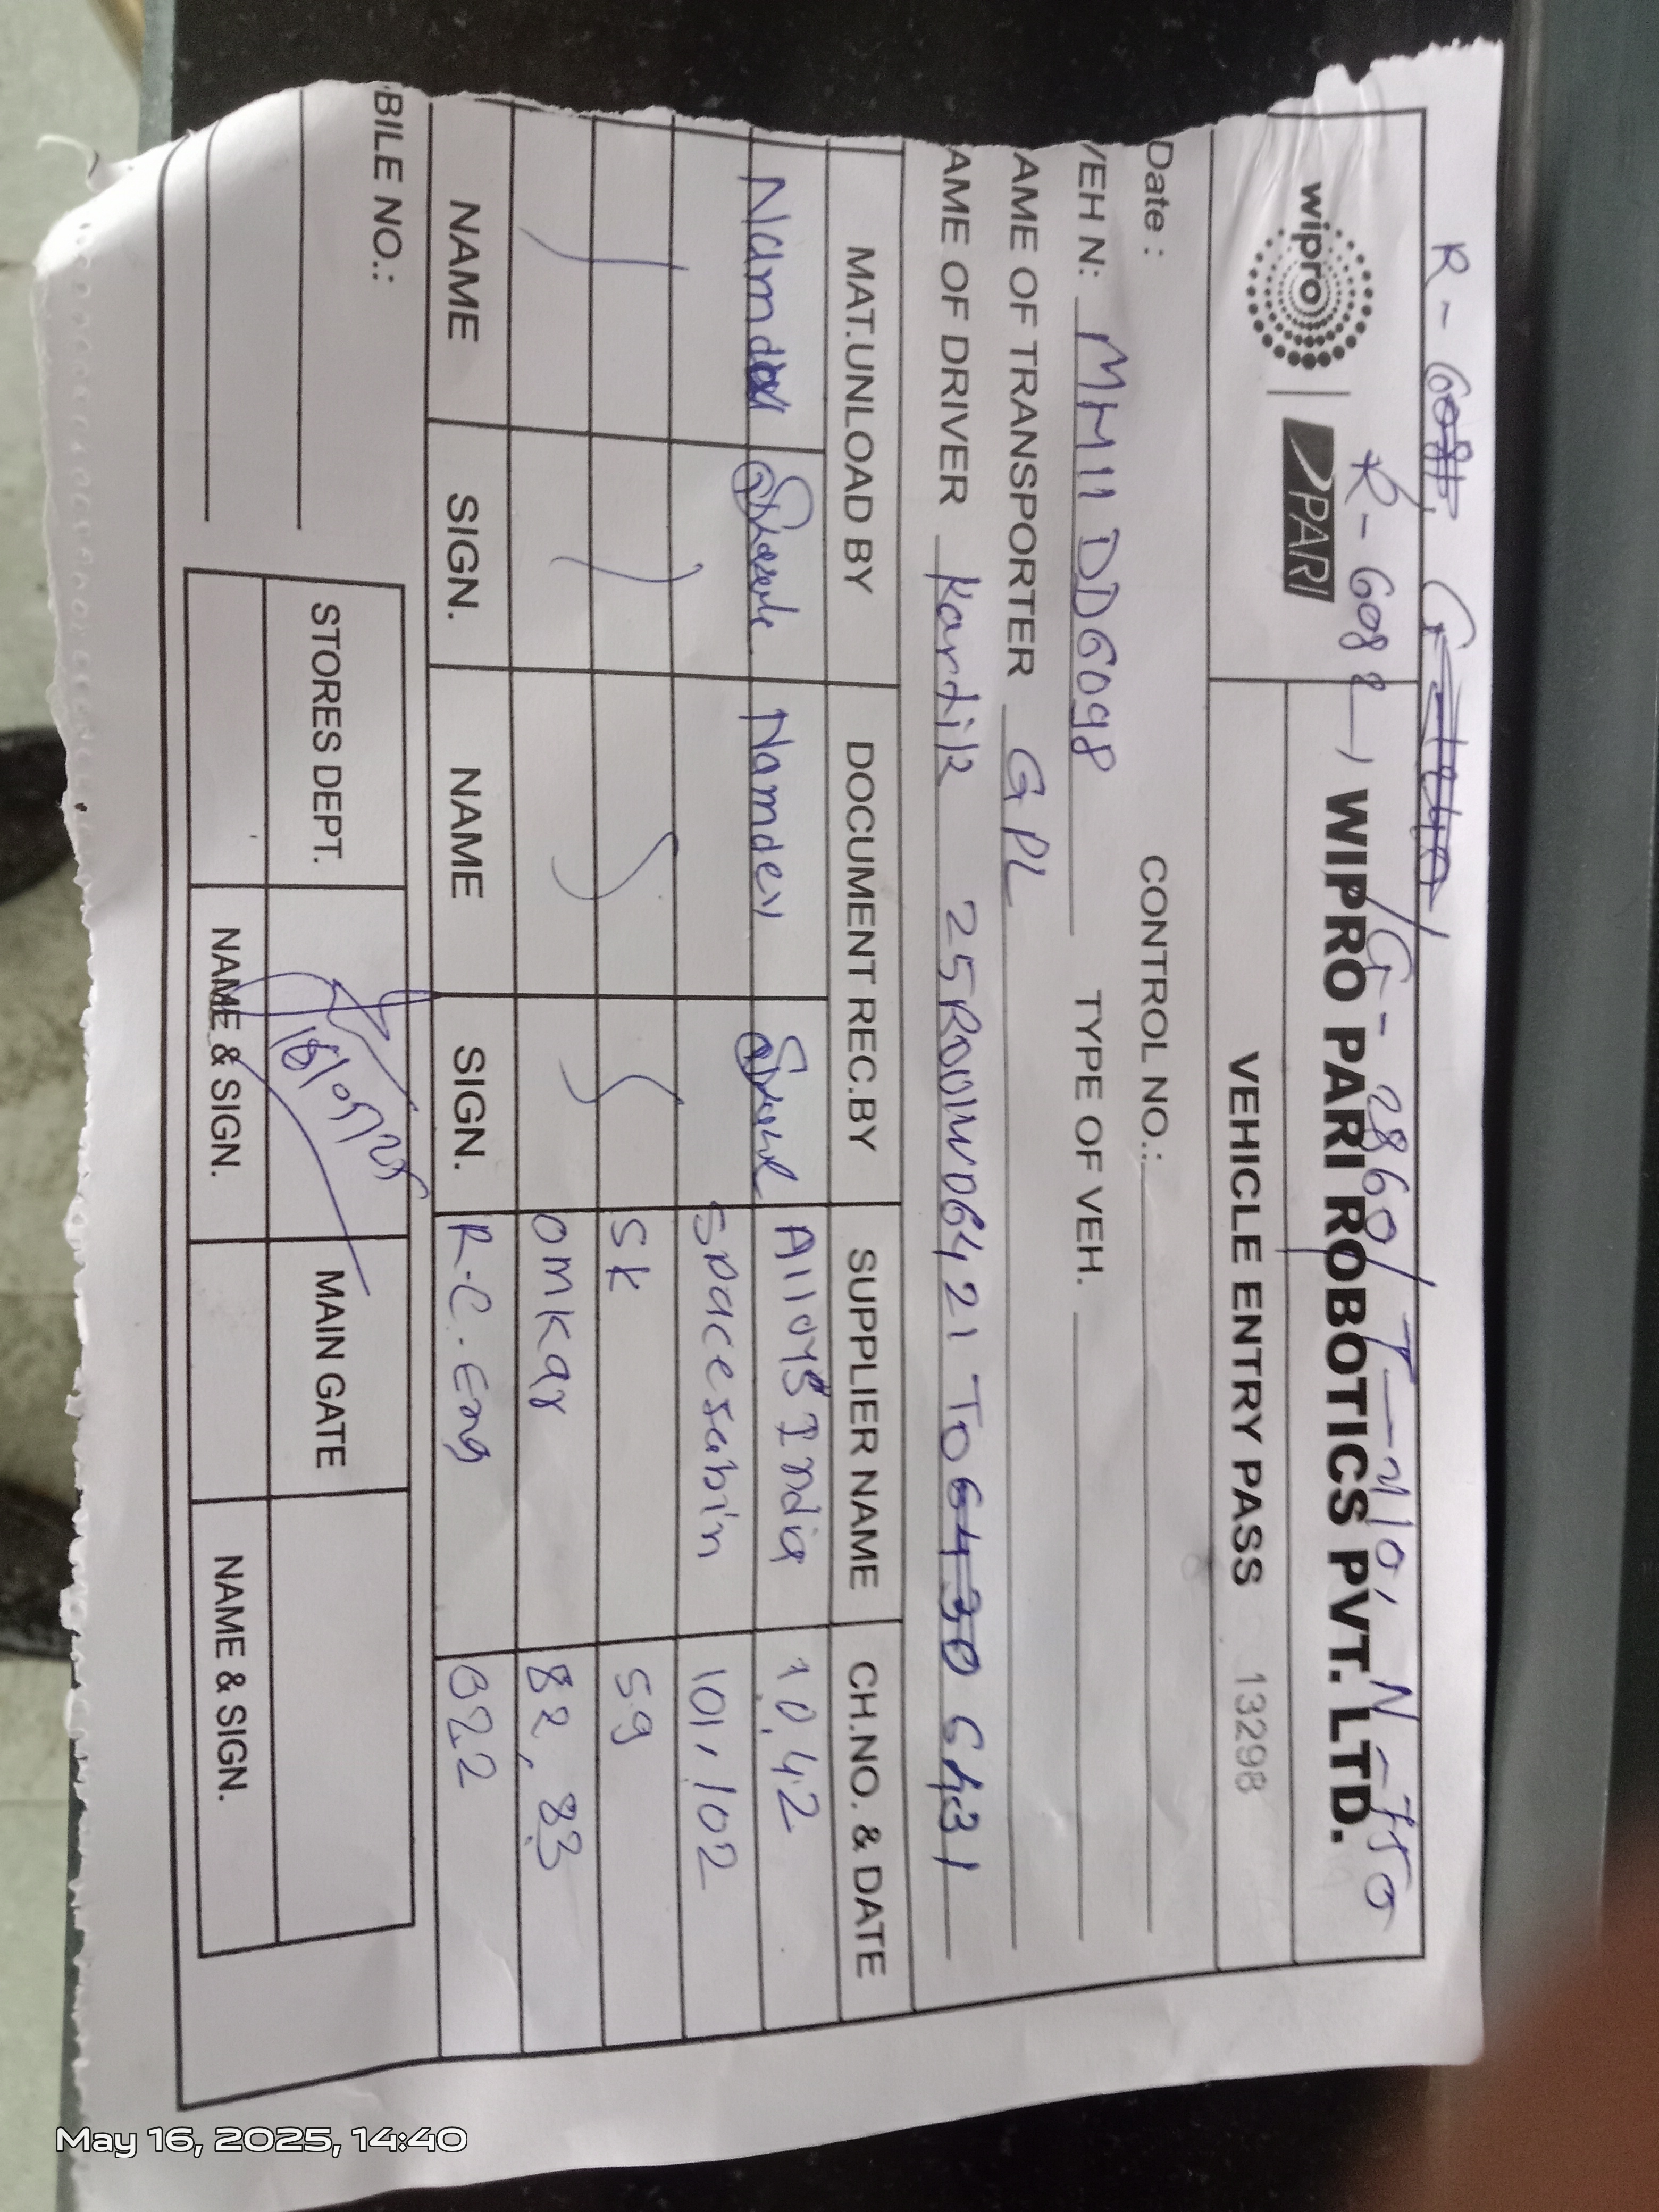 R-
R-6082, G-2860, T-210, N-750
wipro PARI WIPRO PARI ROBOTICS PVT. LTD.
VEHICLE ENTRY PASS 13298
Date : CONTROL NO.:
VEH N: MH11DD6098 TYPE OF VEH.
AME OF TRANSPORTER GPL
AME OF DRIVER Kartik 25R001W06421 To 6430 6431
MAT.UNLOAD BY DOCUMENT REC.BY SUPPLIER NAME CH.NO. & DATE
Namdev Namdev Alloys India 10,42
Spacesabin 101,102
SK 59
OMKar 82,83
NAME SIGN. NAME SIGN. R.C.Eng 022
BILE NO.:
STORES DEPT. 16/05/25 MAIN GATE
NAME & SIGN. NAME & SIGN.
May 16, 2025, 14:40